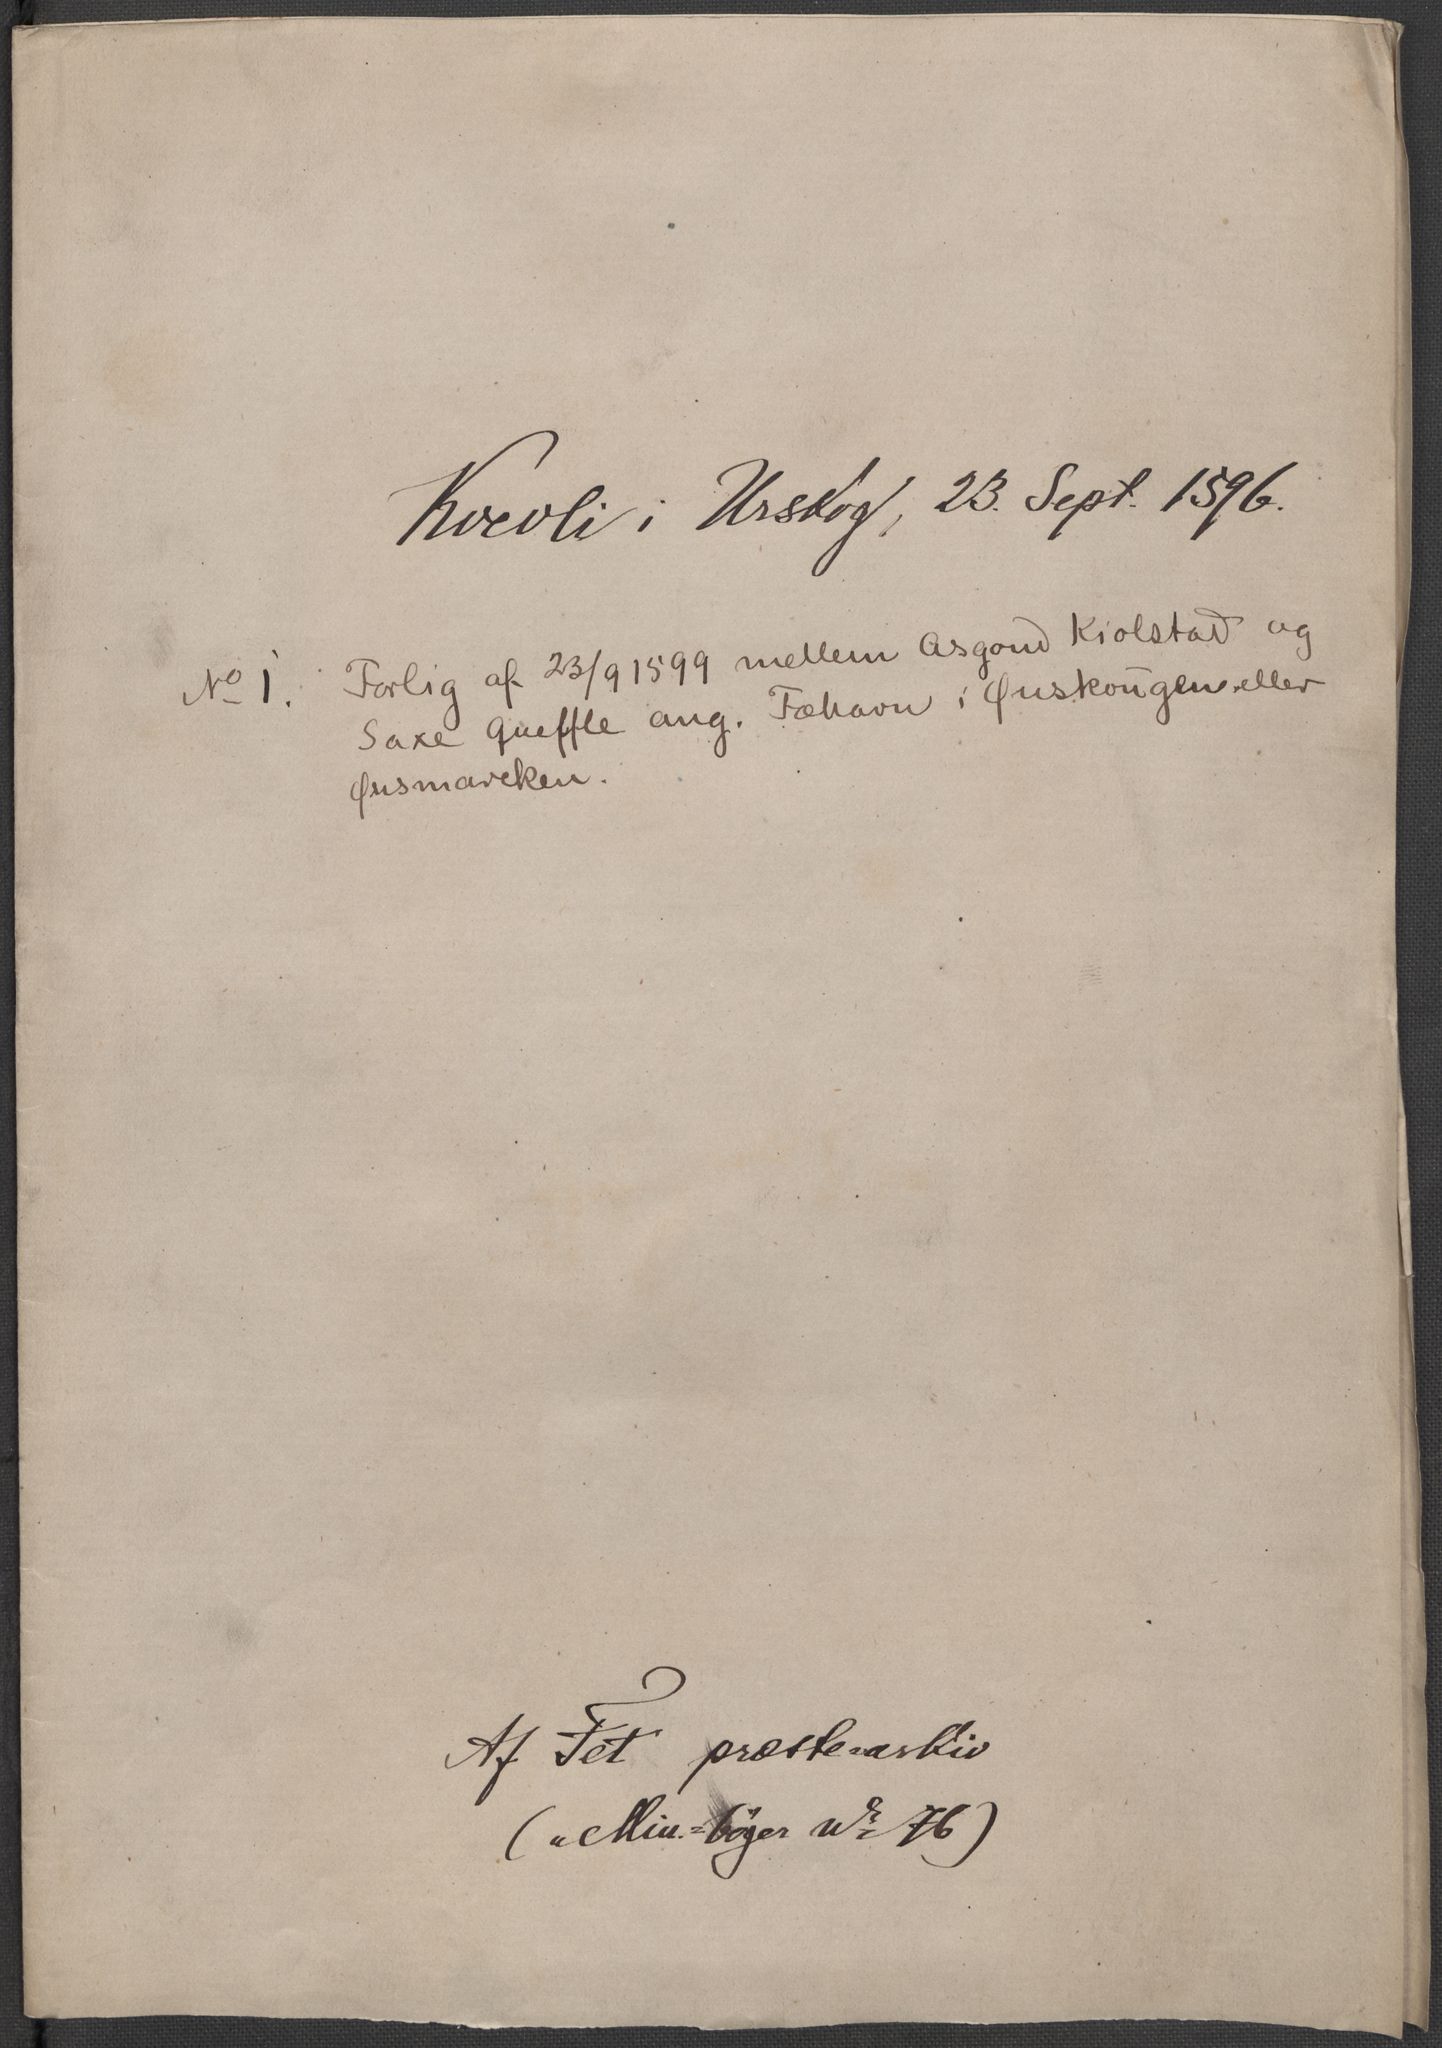 Kvevli i Urskog, 23. Sept. 1596.
No 1. Forlig af 23/9 1599 mellem Asgond Kiolstad og
Saxe Queffle ang. Fæhavn i Ønskougen eller
Ønsmarcken.
Af Fet præste-arkiv
(„Min.-bøger nr. 76)